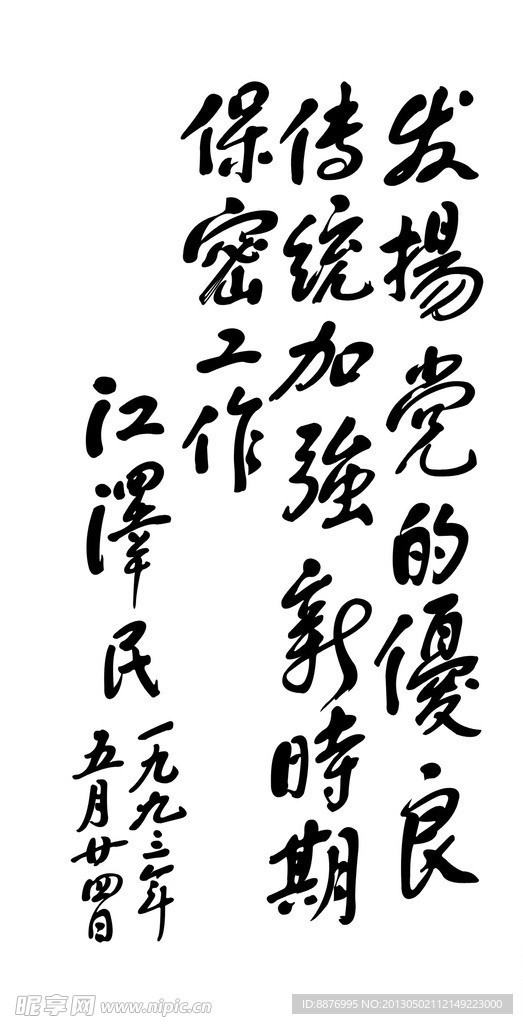 发揚党的優良
传统加強新時期
保密工作
江澤民
一九九三年
五月廿四日
昵享网 www.nipic.cn
ID:8876995 NO:20130502112149223000